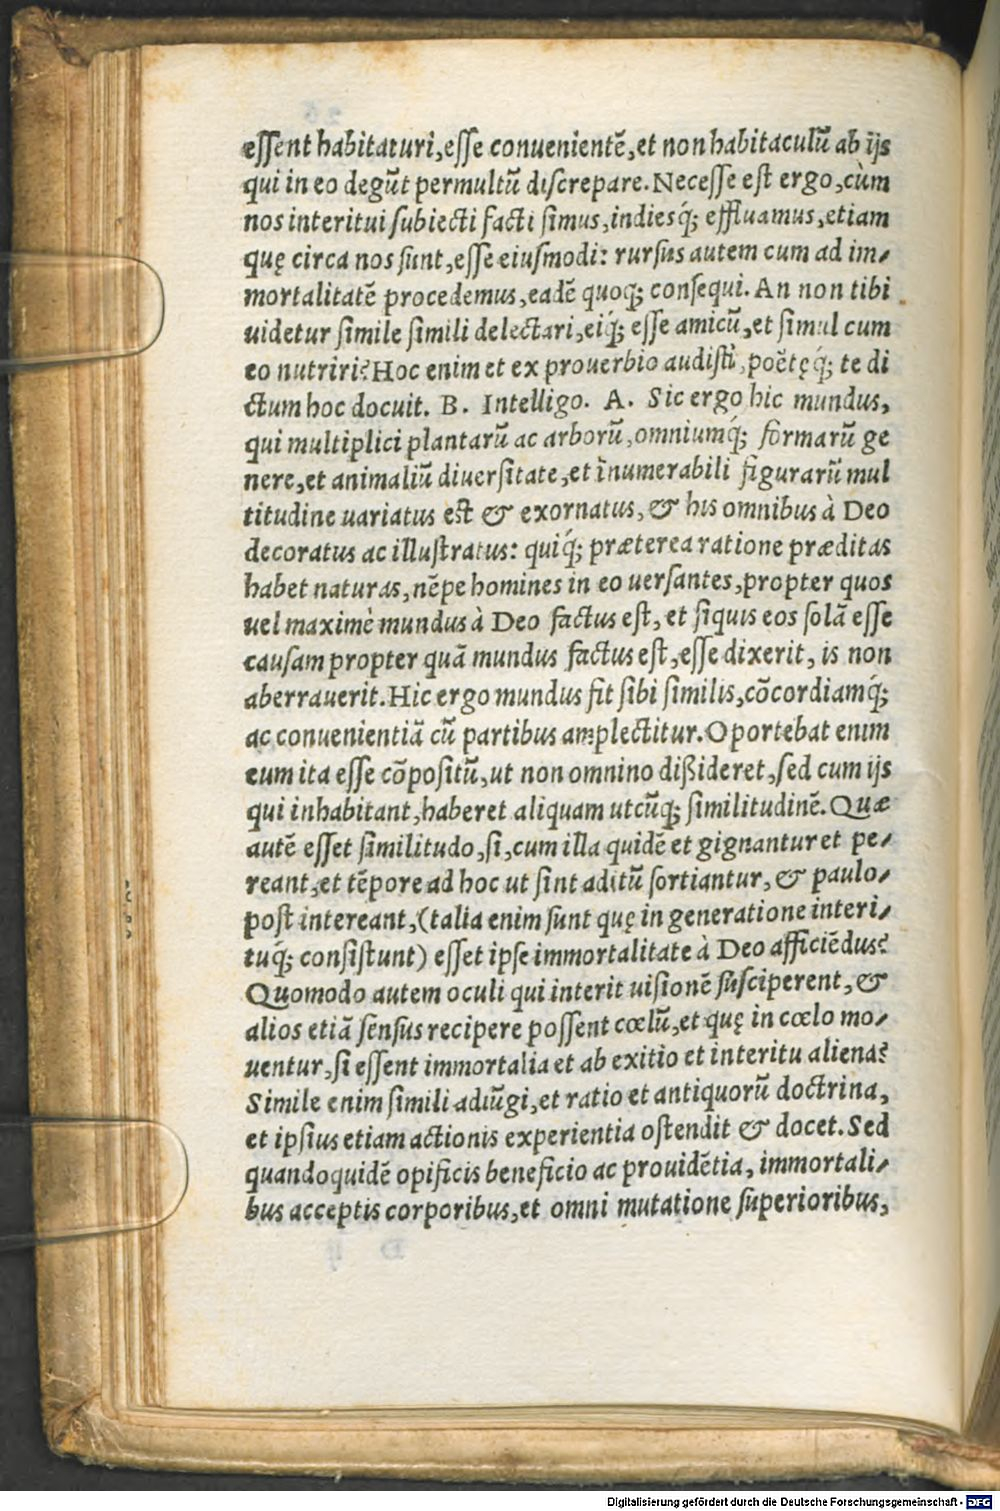 essent habitaturi, esse conuenientē, et non habitaculū ab ijs
qui in eo degūt permultū discrepare. Necesse est ergo, cùm
nos interitui subiecti facti simus, indiesq́; effluamus, etiam
quę circa nos sunt, esse eiusmodi: rursus autem cum ad im-
mortalitatē procedemus, eadē quoq; consequi. An non tibi
uidetur simile simili delectari, eiq́; esse amicū, et simul cum
eo nutriri? Hoc enim et ex prouerbio audisti, poëtęq́; te di
ctum hoc docuit. B. Intelligo. A. Sic ergo hic mundus,
qui multiplici plantarū ac arborū, omniumq́; formarū ge
nere, et animaliū diuersitate, et īnumerabili figurarū mul
titudine uariatus est & exornatus, & his omnibus à Deo
decoratus ac illustratus: quiq́; præterea ratione præditas
habet naturas, nēpe homines in eo uersantes, propter quos
uel maximè mundus à Deo factus est, et siquis eos solā esse
causam propter quā mundus factus est, esse dixerit, is non
aberrauerit. Hic ergo mundus fit sibi similis, cōcordiamq́;
ac conuenientiā cū partibus amplectitur. Oportebat enim
eum ita esse cōpositū, ut non omnino dißideret, sed cum ijs
qui inhabitant, haberet aliquam utcūq; similitudinē. Quæ
autē esset similitudo, si, cum illa quidē et gignantur et pe-
reant, et tēpore ad hoc ut sint aditū sortiantur, & paulo-
post intereant, (talia enim sunt quę in generatione interi-
tuq́; consistunt) esset ipse immortalitate à Deo afficiēdus?
Quomodo autem oculi qui interit uisionē susciperent, &
alios etiā sensus recipere possent cœlū, et quę in cœlo mo-
uentur, si essent immortalia et ab exitio et interitu aliena?
Simile enim simili adiūgi, et ratio et antiquorū doctrina,
et ipsius etiam actionis experientia ostendit & docet. Sed
quandoquidē opificis beneficio ac prouidētia, immortali-
bus acceptis corporibus, et omni mutatione superioribus,
Digitalisierung gefördert durch die Deutsche Forschungsgemeinschaft - DFG